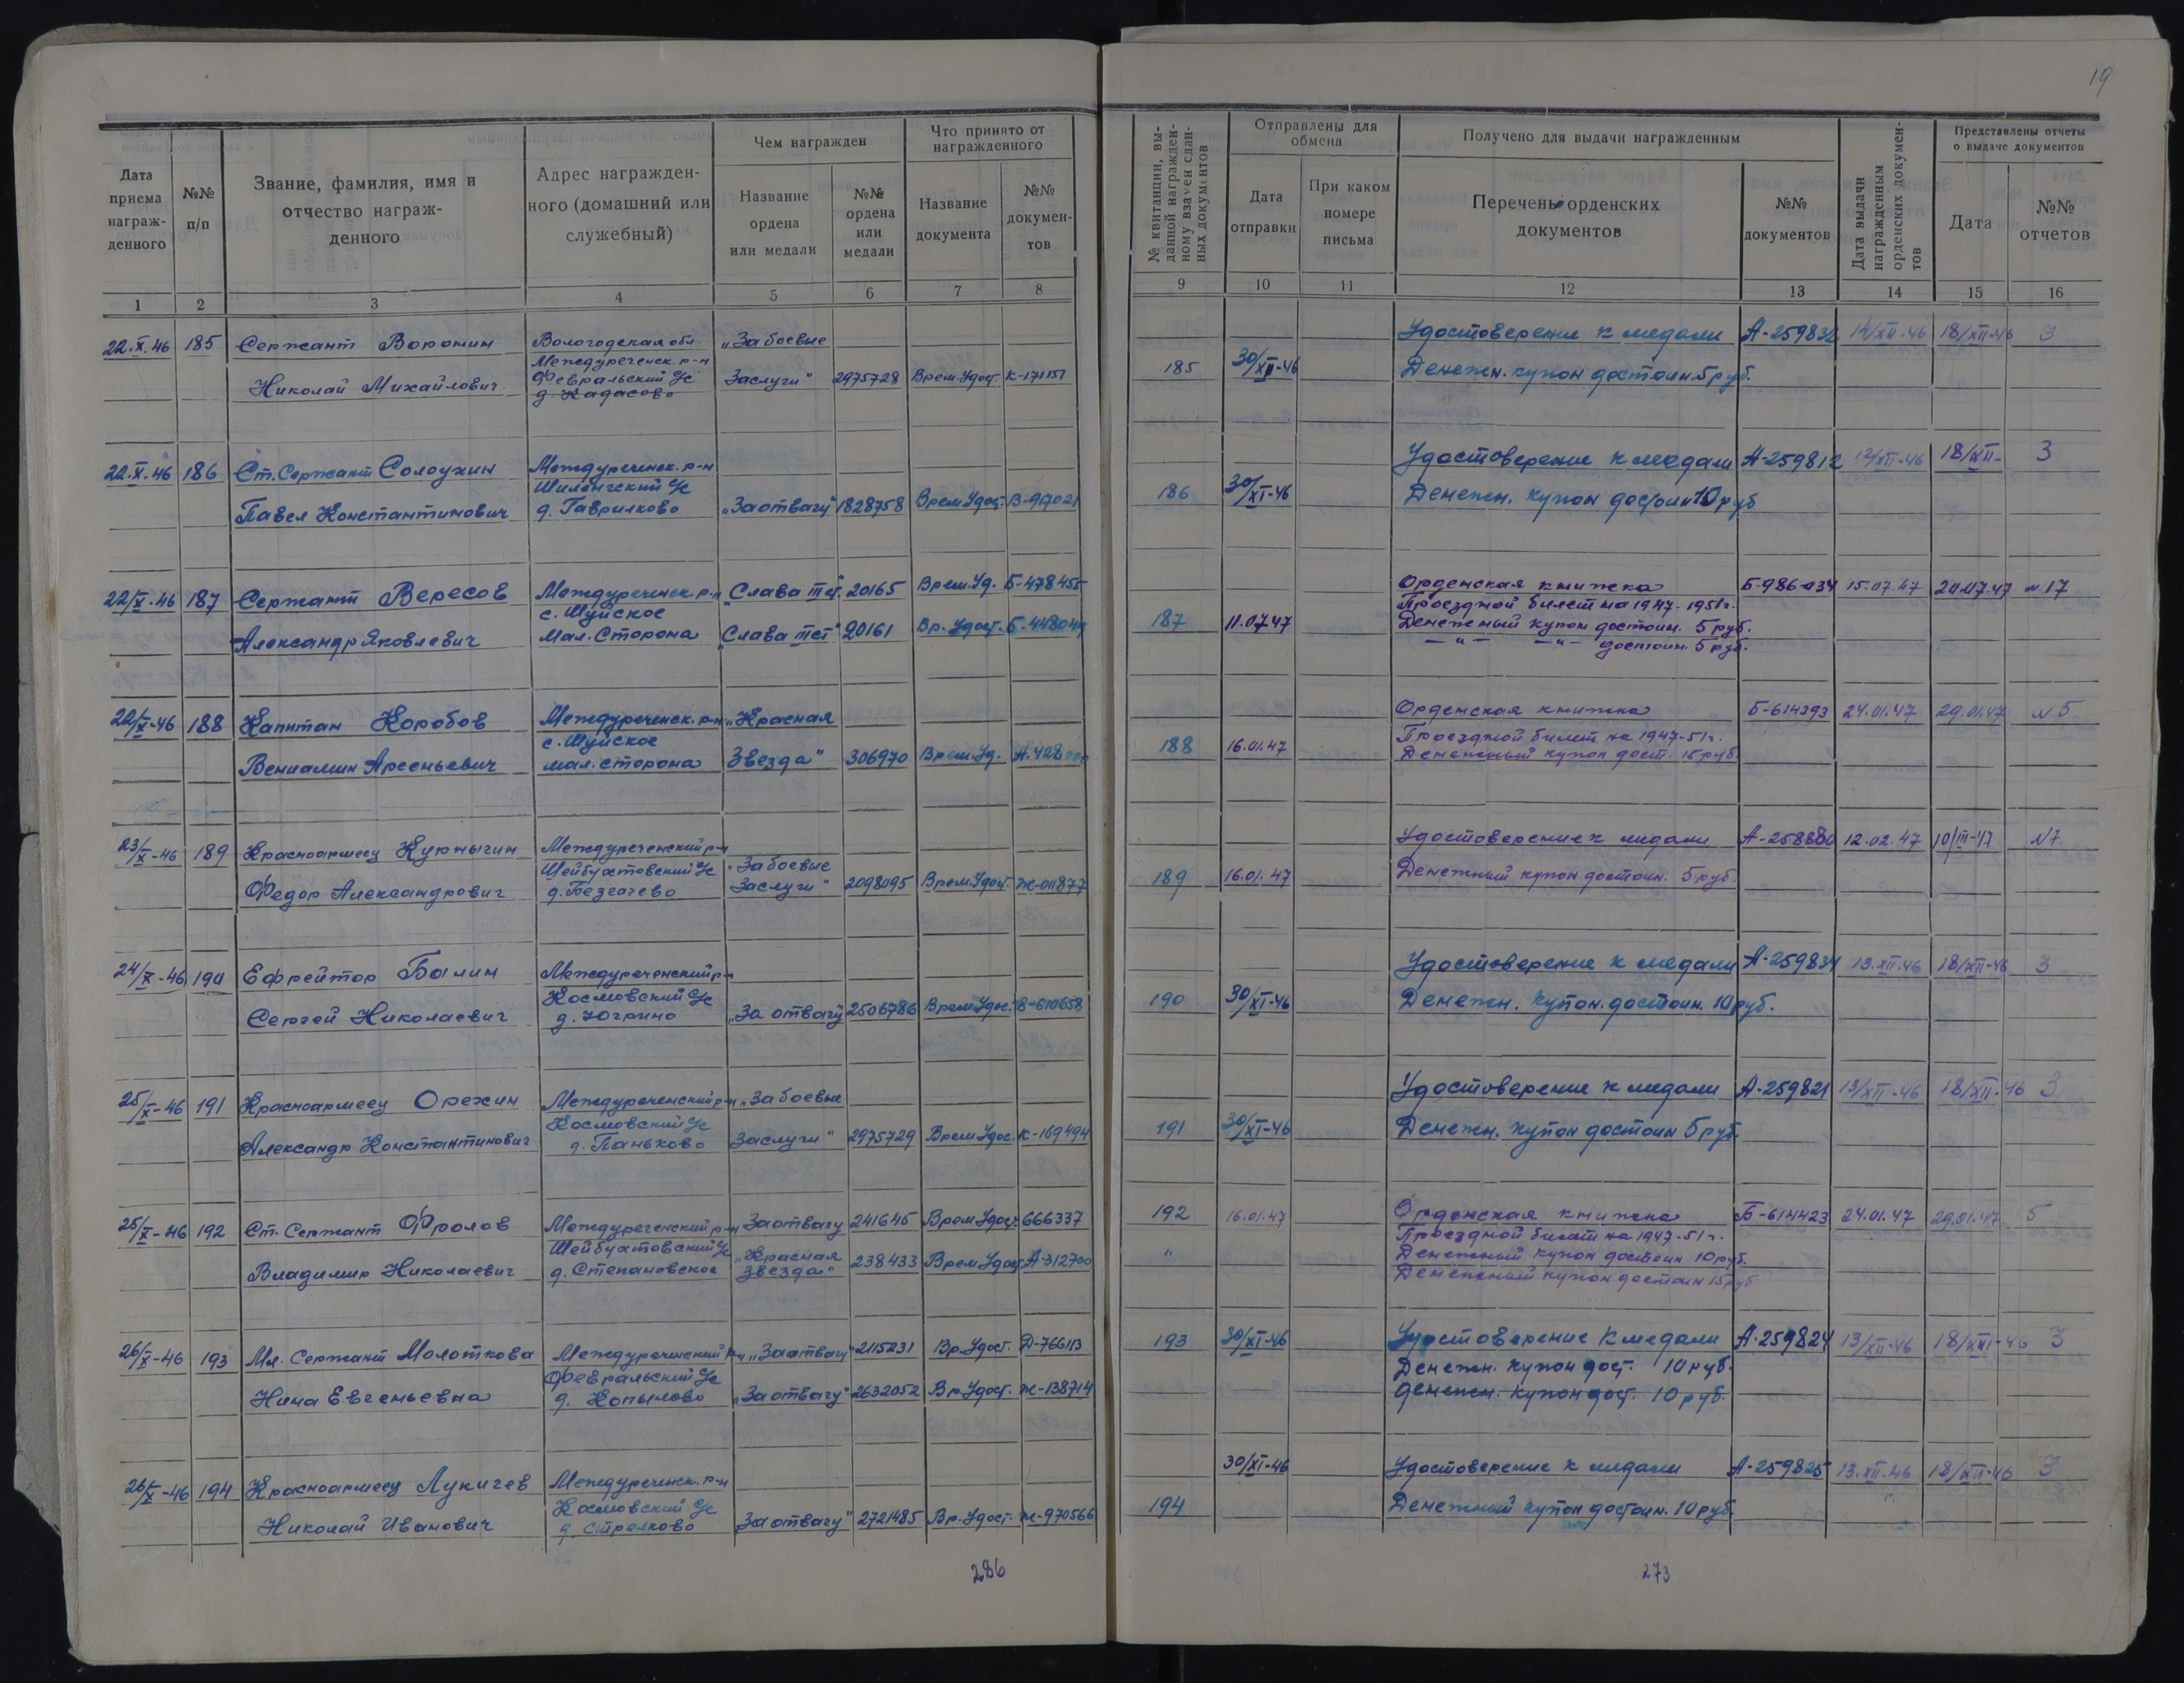 19
Дата приема награж-денного
№№ п/п
Звание, фамилия, имя и отчество награж-денного
Адрес награжден-ного (домашний или служебный)
Чем награжден
Название ордена или медали
№№ ордена или медали
Что принято от награжденного
Название документа
№№ докумен-тов
№ квитанции, вы-данной награжден-ному взамен сдан-ных документов
Отправлены для обмена
Дата отправки
При каком номере письма
Получено для выдачи награжденным
Перечень орденских документов
№№ документов
Дата выдачи награжденным орденских докумен-тов
Представлены отчеты о выдаче документов
Дата
№№ отчетов
1 2 3 4 5 6 7 8 9 10 11 12 13 14 15 16
22.X.46 185 Сержант Воронин Вологодская обл. „За боевые Удостоверение к медали А-259832 14/XII-46 18/XII-46 3
Междуреченск. р-н
Николай Михайлович Февральский с/с Заслуги" 2975728 Врем.Удост. К-171151 185 30/XI-46 Денежн. купон достоин. 5 руб.
д. Кадасово
22.X.46 186 Ст. Сержант Солоухин Междуреченск. р-н Удостоверение к медали А-259812 12/XII-46 18/XII- 3
Шиленгский с/с
Павел Константинович д. Гаврилково „За отвагу" 1828758 Врем.Удост. В-917021 186 30/XI-46 Денежн. купон достоин 10 руб
22/X-46 187 Сержант Вересов Междуреченск р-н „Слава III ст." 20165 Врем.Уд. Б-478455 Орденская книжка Б-986034 15.07.47 20.07.47 №17
с. Шуйское Проездной билет на 1947-1951г.
Александр Яковлевич Мал. Сторона „Слава III ст" 20161 Вр. Удост. Б-448049 187 11.07.47 Денежный купон достоин. 5 руб.
— " — — " — достоин. 5 руб.
22/X-46 188 Капитан Коробов Междуреченск. р-н „Красная Орденская книжка Б-614393 24.01.47 29.01.47 №5
с. Шуйское Проездной билет на 1947-51г.
Вениамин Арсеньевич мал. сторона Звезда" 306970 Врем.Уд. А.428000 188 16.01.47 Денежный купон дост. 15 руб.
23/X-46 189 Красноармеец Куклыгин Междуреченский р-н Удостоверение к медали А-258880 12.02.47 10/III-47 №7.
Шейбухтовский с/с „За боевые
Федор Александрович д. Безгачево Заслуги" 2098095 Врем.Удост. Ж-011877 189 16.01.47 Денежный купон достоин. 5 руб.
24/X-46 190 Ефрейтор Балин Междуреченский р-н Удостоверение к медали А-259831 13.XII.46 18/XII-46 3
Космовский с/с
Сергей Николаевич д. Югрино „За отвагу" 2506786 Врем.Удос. В-610658 190 30/XI-46 Денежн. купон. достоин. 10 руб.
25/X-46 191 Красноармеец Орехин Междуреченский р-н „За боевые Удостоверение к медали А-259821 13/XII-46 18/XII-46 3
Космовский с/с
Александр Константинович д. Паньково Заслуги" 2975729 Врем.Удос. К-169494 191 30/XI-46 Денежн. купон достоин 5 руб.
25/X-46 192 Ст. Сержант Фролов Междуреченский р-н За отвагу 241645 Врем.Удост. 666337 192 16.01.47 Орденская книжка Б-614423 24.01.47 29.01.47 5
Шейбухтовский с/с „Красная Проездной билет на 1947-51г.
Владимир Николаевич д. Степановское Звезда" 238433 Врем.Удост. А-312700 " Денежный купон достоин 10 руб.
Денежный купон достоин 15 руб
26/X-46 193 Мл. Сержант Молоткова Междуреченский р-н „За отвагу" 2115231 Вр.Удост. Д-766113 193 30/XI-46 Удостоверение к медали А-259824 13/XII-46 18/XII-46 3
Февральский с/с Денежн. купон дост. 10 руб.
Нина Евгеньевна д. Копылово „За отвагу" 2632052 Вр.Удост. Ж-138714 денежн. купон дост. 10 руб.
26/X-46 194 Красноармеец Лукичев Междуреченск. р-н 30/XI-46 Удостоверение к медали А-259825 13.XII.46 18/XII-46 3
Космовский с/с
Николай Иванович д. Стрелково За отвагу" 2721485 Вр.Удост. Ж-970566 194 Денежный купон достоин. 10 руб.
286 273